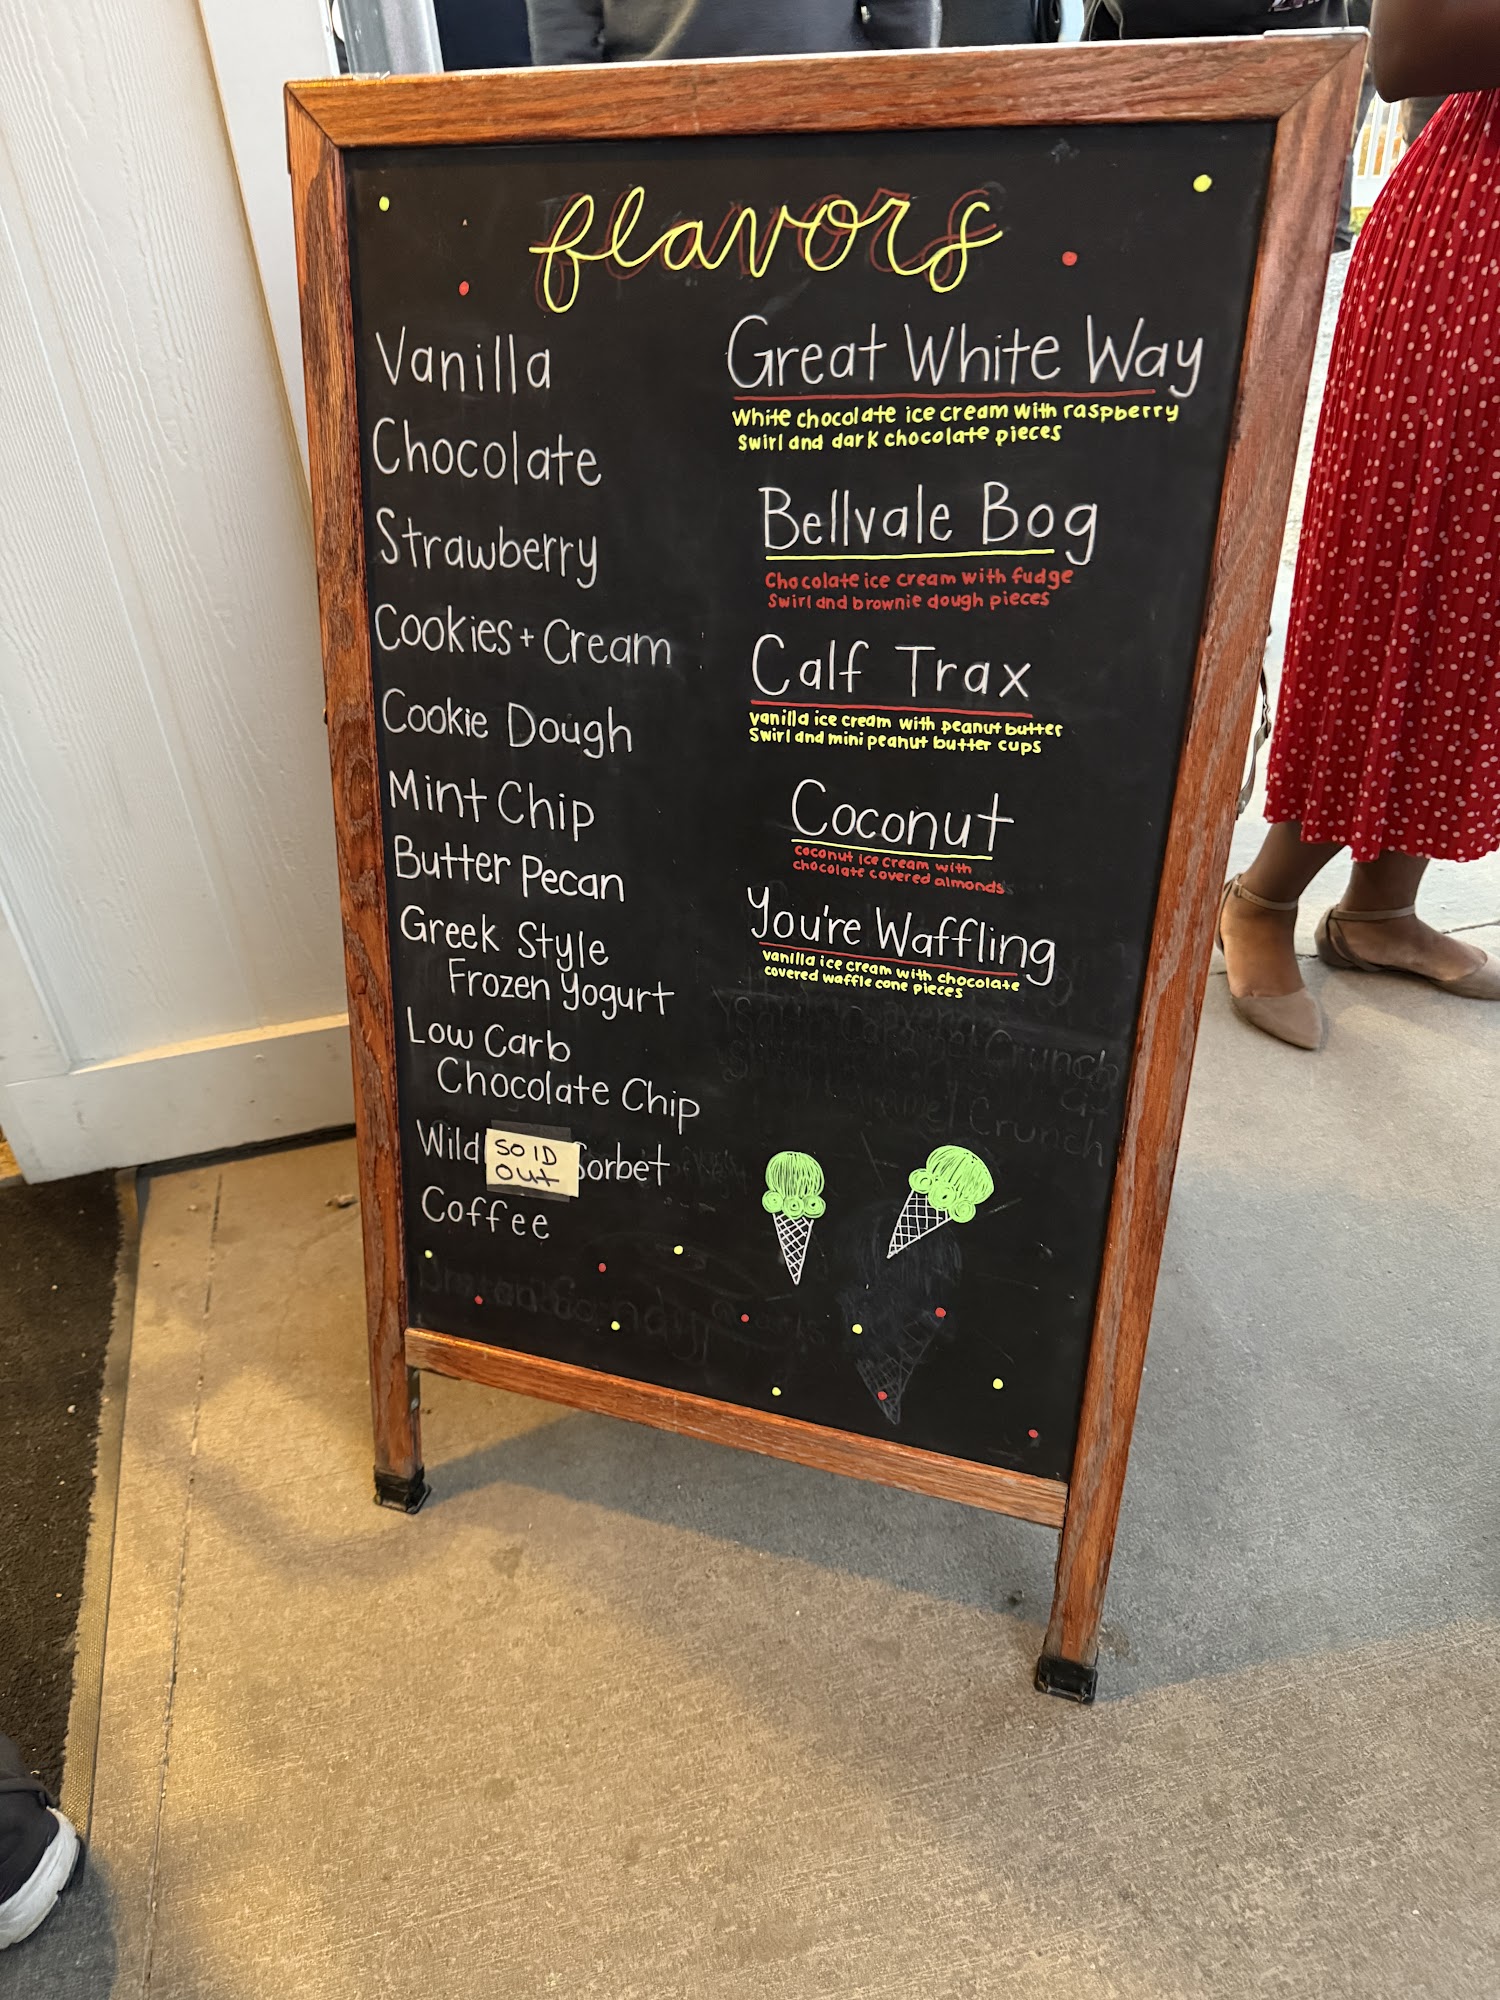 flavors
Vanilla
Chocolate
Strawberry
Cookies + Cream
Cookie Dough
Mint Chip
Butter Pecan
Greek Style
Frozen Yogurt
Low Carb
Chocolate Chip
Wild Sorbet
SOLD
OUT
Coffee
Great White Way
White chocolate ice cream with raspberry
Swirl and dark chocolate pieces
Bellvale Bog
Chocolate ice cream with fudge
Swirl and brownie dough pieces
Calf Trax
vanilla ice cream with peanut butter
Swirl and mini peanut butter cups
Coconut
coconut ice cream with
chocolate covered almonds
You're Waffling
vanilla ice cream with chocolate
covered waffle cone pieces
Caramel Crunch
Crunch